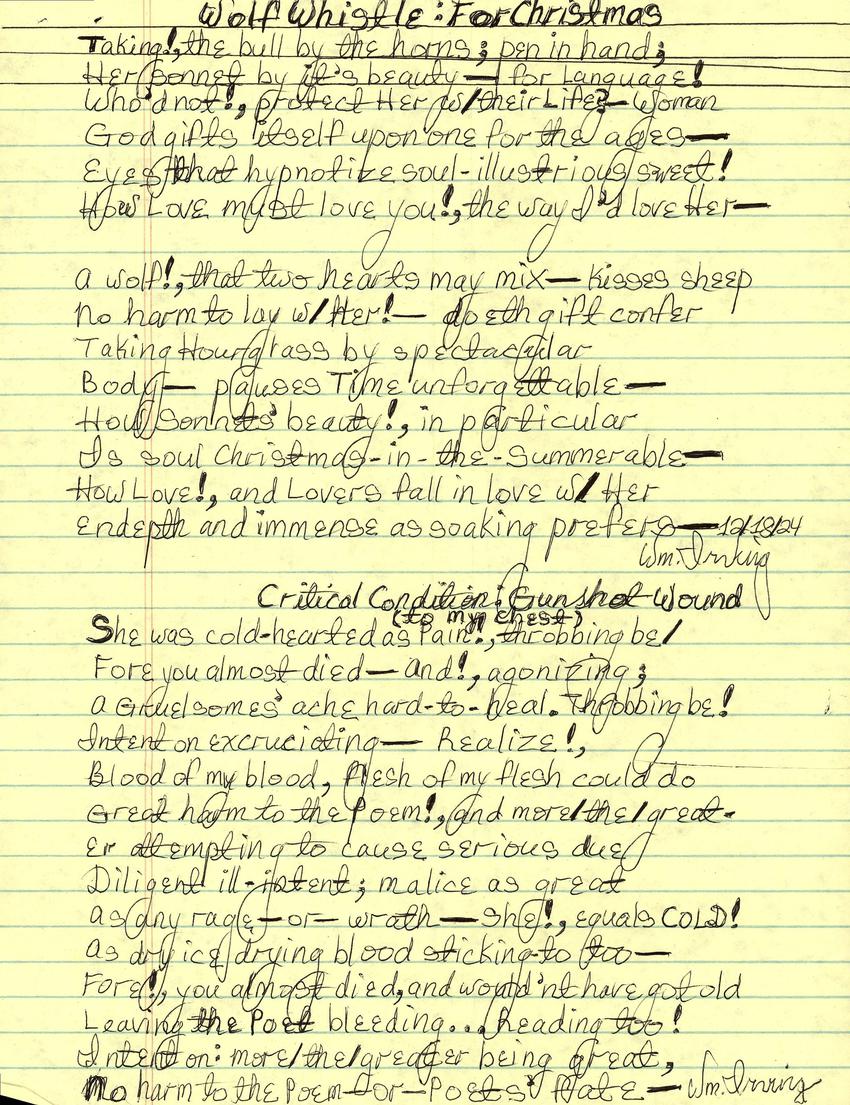 Wolf Whistle: For Christmas
Taking!, the bull by the horns; pen in hand;
Her Sonnet by it's beauty — for Language!
Who'd not!, protect Her w/their Life? — Woman
God gifts itself upon one for the ages —
Eyes that hypnotize soul-illustrious sweet!
How Love must love you!, the way I'd love Her —
A wolf!, that two hearts may mix — kisses sheep
No harm to lay w/Her! — doeth gift confer
Taking Hourglass by spectacular
Body — pauses Time unforgettable —
How Sonnets' beauty!, in particular
Is soul Christmas-in-the-Summerable —
How Love!, and Lovers fall in love w/Her
Endepth and immense as soaking prefers — 12/18/24
Wm. Irving
Critical Condition: Gunshot Wound
(to my chest)
She was cold-hearted as Pain!, throbbing be/
Fore you almost died — and!, agonizing;
A Gruelsomes' ache hard-to-heal. Throbbing be!
Intent on excruciating — Realize!,
Blood of my blood, flesh of my flesh could do
Great harm to the Poem!, and more/the/great-
Er attempting to cause serious due
Diligent ill-intent; malice as great
As any rage — or — wrath — she!, equals COLD!
As dry ice drying blood sticking-to too —
Fore!, you almost died, and would'nt have got old
Leaving the Poet bleeding... Reading too!
Intent on: more/the/greater being great,
No harm to the Poem — or — Poets' fate — Wm. Irving